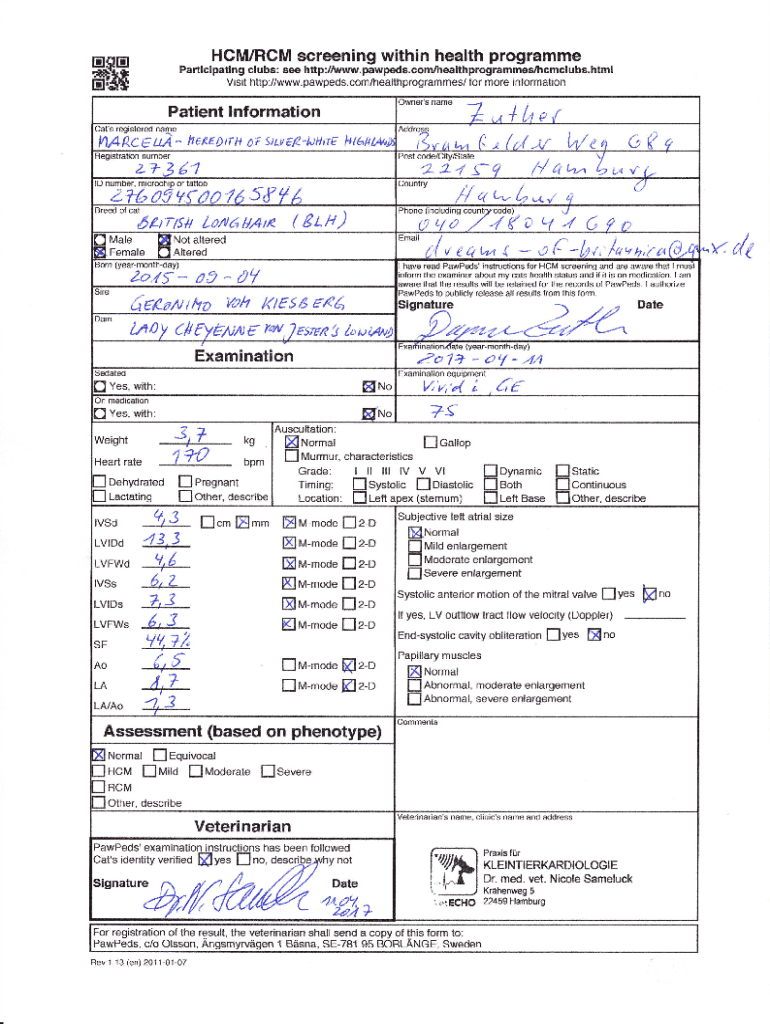 HCM/RCM screening within health programme
Participating clubs: see http://www.pawpeds.com/healthprogrammes/hcmclubs.html
Visit http://www.pawpeds.com/healthprogrammes/ for more information
Patient Information
Owner's name
Zuther
Cat's registered name
MARCELLA - MEREDITH OF SILVER-WHITE HIGHLANDS
Address
Bramfelder Weg 68a
Registration number
27361
Post code/City/State
22159 Hamburg
ID number, microchip or tattoo
276094500165846
Country
Hamburg
Breed of cat
BRITISH LONGHAIR (BLH)
Phone (including country code)
040/18041690
Male Not altered
Female Altered
Email
dreams-of-britannica@gmx.de
Born (year-month-day)
2015-09-04
I have read PawPeds' instructions for HCM screening and are aware that I must
inform the examinator about my cats health status and if it is on medication. I am
aware that the results will be retained for the records of PawPeds. I authorize
PawPeds to publicly release all results from this form.
Sire
GERONIMO VOM KIESBERG
Signature Date
Dam
LADY CHEYENNE VON JESTER'S LOWLAND
Examination
Examination date (year-month-day)
2017-04-11
Sedated
Yes, with: No
Examination equipment
Vivid i, GE
On medication
Yes, with: No
7S
Weight 3,7 kg
Heart rate 170 bpm
Dehydrated Pregnant
Lactating Other, describe
Auscultation:
Normal Gallop
Murmur, characteristics
Grade: I II III IV V VI Dynamic Static
Timing: Systolic Diastolic Both Continuous
Location: Left apex (sternum) Left Base Other, describe
IVSd 4,3 cm mm M-mode 2-D
LVIDd 13,3 M-mode 2-D
LVFWd 4,6 M-mode 2-D
IVSs 6,2 M-mode 2-D
LVIDs 7,3 M-mode 2-D
LVFWs 6,3 M-mode 2-D
SF 44,7%
Ao 6,5 M-mode 2-D
LA 8,7 M-mode 2-D
LA/Ao 1,3
Subjective left atrial size
Normal
Mild enlargement
Moderate enlargement
Severe enlargement
Systolic anterior motion of the mitral valve yes no
If yes, LV outflow tract flow velocity (Doppler)
End-systolic cavity obliteration yes no
Papillary muscles
Normal
Abnormal, moderate enlargement
Abnormal, severe enlargement
Assessment (based on phenotype)
Normal Equivocal
HCM Mild Moderate Severe
RCM
Other, describe
Comments
Veterinarian
PawPeds' examination instructions has been followed
Cat's identity verified yes no, describe why not
Signature Date
11.04.
2017
Veterinarian's name, clinic's name and address
Praxis für
KLEINTIERKARDIOLOGIE
Dr. med. vet. Nicole Sameluck
Krähenweg 5
22459 Hamburg
ECHO
For registration of the result, the veterinarian shall send a copy of this form to:
PawPeds, c/o Olsson, Ängsmyrvägen 1 Bäsna, SE-781 95 BORLÄNGE, Sweden
Rev 1.13 (en) 2011-01-07